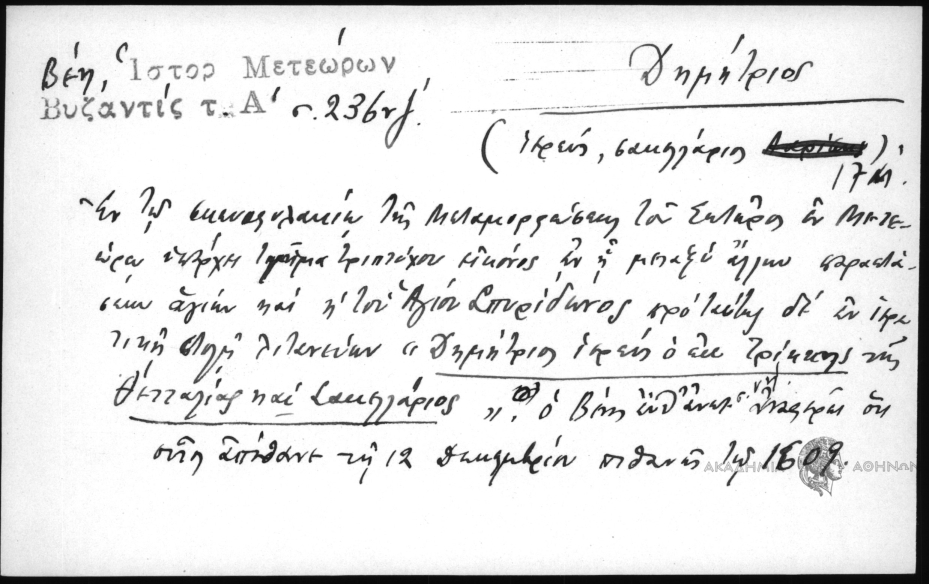 Βέη, Ἱστορ Μετεώρων
Βυζαντίς τ. Α' σ. 236
Δημήτριος
(ἱερεύς, σακελλάριος).
17 Μ.
Ἐν τῷ σκευοφυλακίῳ τῆς Μεταμορφώσεως τοῦ Σωτῆρος ἐν Μετε-
ώροις ὑπάρχει τμῆμα τριπτύχου εἰκόνος ἐν ᾗ μεταξὺ ἄλλων παραστά-
σεων ἁγίων καὶ ἡ τοῦ Ἁγίου Σπυρίδωνος πρὸ ταύτης δὲ ἐν ἱερα
τικῇ στολῇ λιτανεύων "Δημήτριος ἱερεὺς ὁ ἐκ Τρίκκης τῆς
Θετταλίας καὶ Σακελλάριος". ὁ Βέης ὅτι
οὗτος ἀπέθανε τῇ 12 Δεκεμβρίου πιθανῶς τῷ 1609.
ΑΚΑΔΗΜΙΑ ΑΘΗΝΩΝ